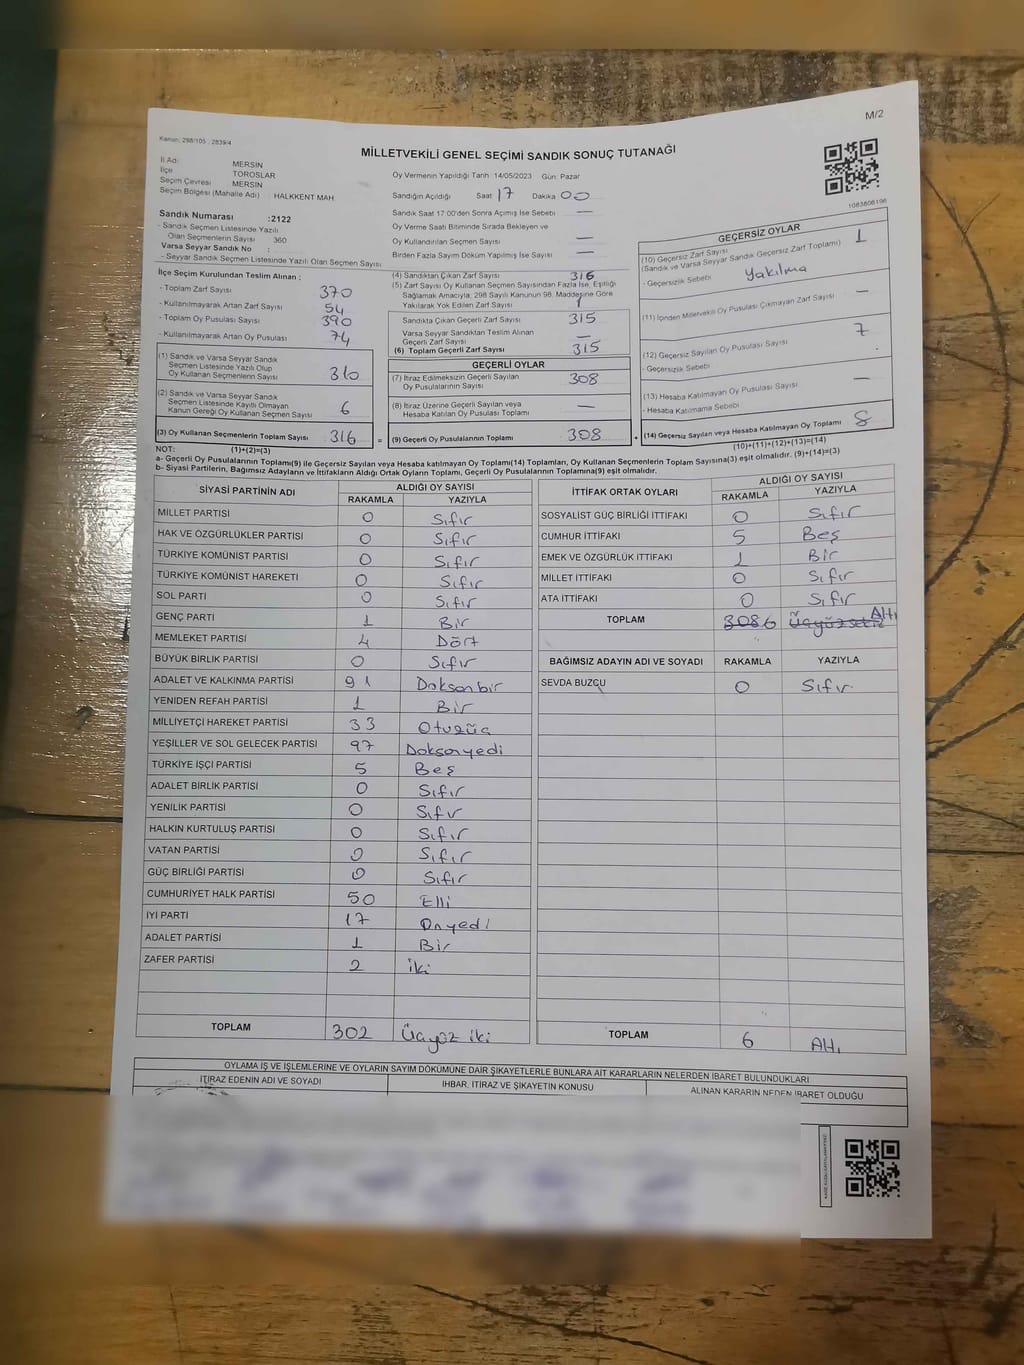 M/2
Kanun: 298/105 ; 2839/4
MİLLETVEKİLİ GENEL SEÇİMİ SANDIK SONUÇ TUTANAĞI
1083806196
İl Adı MERSİN
İlçe TOROSLAR
Seçim Çevresi MERSİN
Seçim Bölgesi (Mahalle Adı) HALKKENT MAH
Sandık Numarası :2122
- Sandık Seçmen Listesinde Yazılı
Olan Seçmenlerin Sayısı 360
Varsa Seyyar Sandık No :
- Seyyar Sandık Seçmen Listesinde Yazılı Olan Seçmen Sayısı
Oy Vermenin Yapıldığı Tarih 14/05/2023 Gün: Pazar
Sandığın Açıldığı Saat 17 Dakika 00
Sandık Saat 17:00'den Sonra Açılmış İse Sebebi —
Oy Verme Saati Bitiminde Sırada Bekleyen ve
Oy Kullandırılan Seçmen Sayısı —
Birden Fazla Sayım Döküm Yapılmış İse Sayısı —
İlçe Seçim Kurulundan Teslim Alınan :
- Toplam Zarf Sayısı 370
- Kullanılmayarak Artan Zarf Sayısı 54
- Toplam Oy Pusulası Sayısı 390
- Kullanılmayarak Artan Oy Pusulası 74
(1) Sandık ve Varsa Seyyar Sandık
Seçmen Listesinde Yazılı Olup
Oy Kullanan Seçmenlerin Sayısı 310
(2) Sandık ve Varsa Seyyar Sandık
Seçmen Listesinde Kayıtlı Olmayan
Kanun Gereği Oy Kullanan Seçmen Sayısı 6
(3) Oy Kullanan Seçmenlerin Toplam Sayısı 316 =
(4) Sandıktan Çıkan Zarf Sayısı 316
(5) Zarf Sayısı Oy Kullanan Seçmen Sayısından Fazla İse, Eşitliği
Sağlamak Amacıyla, 298 Sayılı Kanunun 98. Maddesine Göre
Yakılarak Yok Edilen Zarf Sayısı 1
Sandıkta Çıkan Geçerli Zarf Sayısı 315
Varsa Seyyar Sandıktan Teslim Alınan
Geçerli Zarf Sayısı —
(6) Toplam Geçerli Zarf Sayısı 315
GEÇERLİ OYLAR
(7) İtiraz Edilmeksizin Geçerli Sayılan
Oy Pusulalarının Sayısı 308
(8) İtiraz Üzerine Geçerli Sayılan veya
Hesaba Katılan Oy Pusulası Toplamı —
(9) Geçerli Oy Pusulalarının Toplamı 308 +
GEÇERSİZ OYLAR
(10) Geçersiz Zarf Sayısı
(Sandık ve Varsa Seyyar Sandık Geçersiz Zarf Toplamı) 1
- Geçersizlik Sebebi Yakılma
(11) İçinden Milletvekili Oy Pusulası Çıkmayan Zarf Sayısı —
(12) Geçersiz Sayılan Oy Pusulası Sayısı 7
- Geçersizlik Sebebi
(13) Hesaba Katılmayan Oy Pusulası Sayısı —
- Hesaba Katılmama Sebebi
(14) Geçersiz Sayılan veya Hesaba Katılmayan Oy Toplamı 8
NOT: (1)+(2)=(3) (10)+(11)+(12)+(13)=(14)
a- Geçerli Oy Pusulalarının Toplamı(9) ile Geçersiz Sayılan veya Hesaba katılmayan Oy Toplamı(14) Toplamları, Oy Kullanan Seçmenlerin Toplam Sayısına(3) eşit olmalıdır. (9)+(14)=(3)
b- Siyasi Partilerin, Bağımsız Adayların ve İttifakların Aldığı Ortak Oyların Toplamı, Geçerli Oy Pusulalarının Toplamına(9) eşit olmalıdır.
SİYASİ PARTİNİN ADI ALDIĞI OY SAYISI
RAKAMLA YAZIYLA
MİLLET PARTİSİ 0 Sıfır
HAK VE ÖZGÜRLÜKLER PARTİSİ 0 Sıfır
TÜRKİYE KOMÜNİST PARTİSİ 0 Sıfır
TÜRKİYE KOMÜNİST HAREKETİ 0 Sıfır
SOL PARTİ 0 Sıfır
GENÇ PARTİ 1 Bir
MEMLEKET PARTİSİ 4 Dört
BÜYÜK BİRLİK PARTİSİ 0 Sıfır
ADALET VE KALKINMA PARTİSİ 91 Doksanbir
YENİDEN REFAH PARTİSİ 1 Bir
MİLLİYETÇİ HAREKET PARTİSİ 33 Otuzüç
YEŞİLLER VE SOL GELECEK PARTİSİ 97 Doksanyedi
TÜRKİYE İŞÇİ PARTİSİ 5 Beş
ADALET BİRLİK PARTİSİ 0 Sıfır
YENİLİK PARTİSİ 0 Sıfır
HALKIN KURTULUŞ PARTİSİ 0 Sıfır
VATAN PARTİSİ 0 Sıfır
GÜÇ BİRLİĞİ PARTİSİ 0 Sıfır
CUMHURİYET HALK PARTİSİ 50 Elli
İYİ PARTİ 17 Onyedi
ADALET PARTİSİ 1 Bir
ZAFER PARTİSİ 2 İki
TOPLAM 302 Üçyüz iki
İTTİFAK ORTAK OYLARI ALDIĞI OY SAYISI
RAKAMLA YAZIYLA
SOSYALİST GÜÇ BİRLİĞİ İTTİFAKI 0 Sıfır
CUMHUR İTTİFAKI 5 Beş
EMEK VE ÖZGÜRLÜK İTTİFAKI 1 Bir
MİLLET İTTİFAKI 0 Sıfır
ATA İTTİFAKI 0 Sıfır
TOPLAM 308 6 Üçyüzsekiz Altı
BAĞIMSIZ ADAYIN ADI VE SOYADI RAKAMLA YAZIYLA
SEVDA BUZCU 0 Sıfır
TOPLAM 6 Altı
OYLAMA İŞ VE İŞLEMLERİNE VE OYLARIN SAYIM DÖKÜMÜNE DAİR ŞİKAYETLERLE BUNLARA AİT KARARLARIN NELERDEN İBARET BULUNDUKLARI
İTİRAZ EDENİN ADI VE SOYADI İHBAR, İTİRAZ VE ŞİKAYETİN KONUSU ALINAN KARARIN NEDEN İBARET OLDUĞU